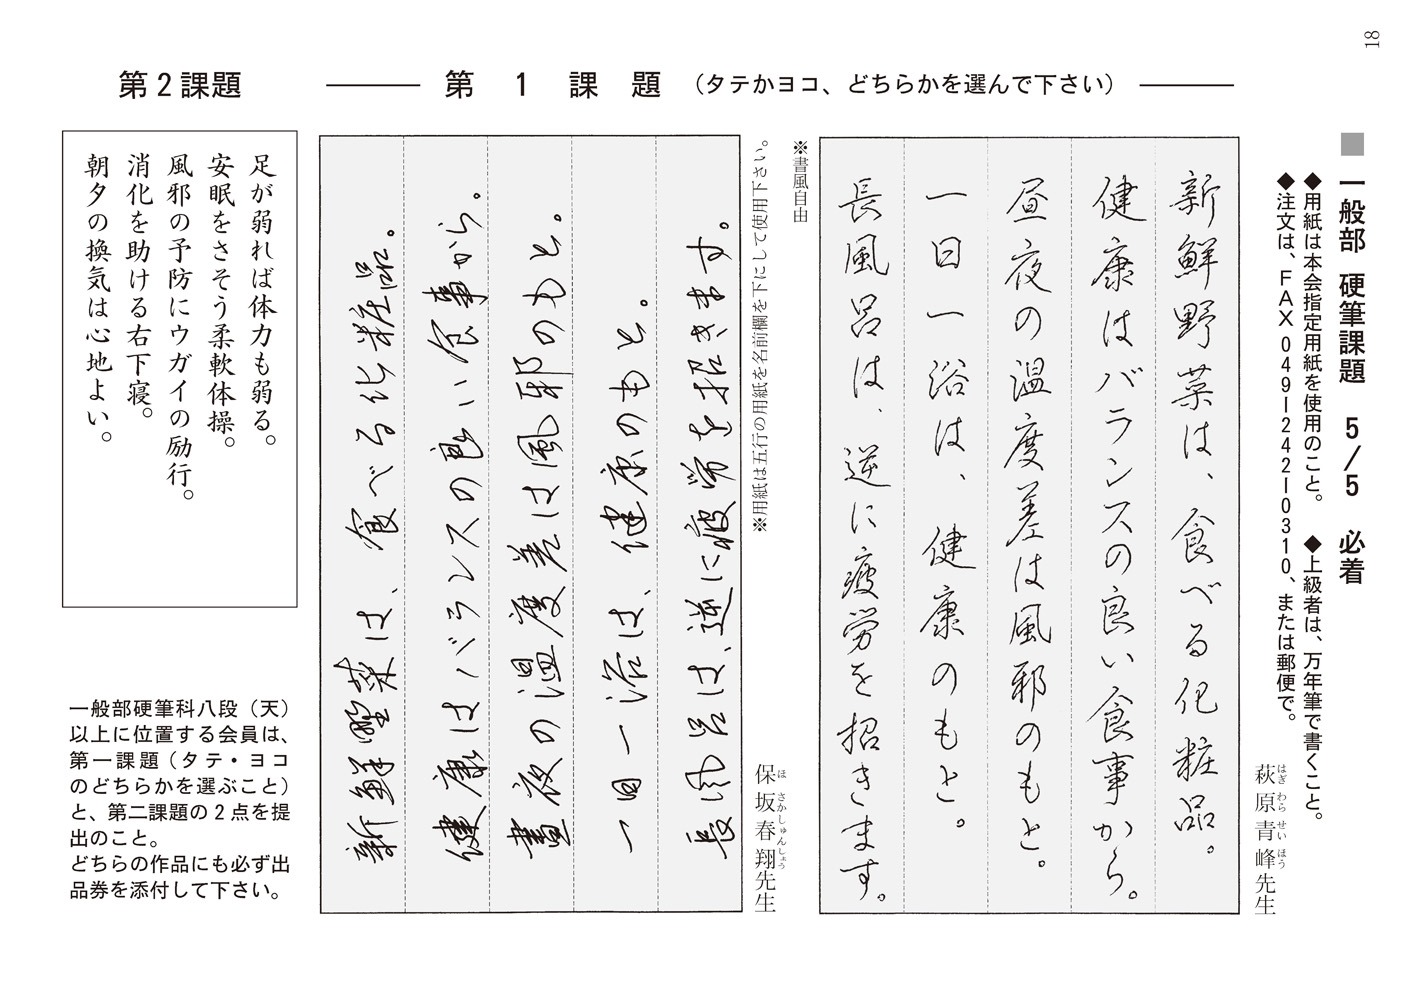 18
■一般部 硬筆課題 5/5 必着
◆用紙は本会指定用紙を使用のこと。 ◆上級者は、万年筆で書くこと。
◆注文は、FAX049ー242ー0310、または郵便で。
第1課題 (タテかヨコ、どちらかを選んで下さい)
萩原青峰先生
はぎ わら せい ほう
新鮮野菜は、食べる化粧品。
健康はバランスの良い食事から。
昼夜の温度差は風邪のもと。
一日一浴は、健康のもと。
長風呂は、逆に疲労を招きます。
※書風自由
※用紙は五行の用紙を名前欄を下にして使用下さい。
保坂春翔先生
ほ さか しゅん しょう
新鮮野菜は、食べる化粧品。
健康はバランスの良い食事から。
晝夜の温度差は風邪のもと。
一日一浴は、健康のもと。
長風呂は、逆に疲労を招きます。
第2課題
足が弱れば体力も弱る。
安眠をさそう柔軟体操。
風邪の予防にウガイの励行。
消化を助ける右下寝。
朝夕の換気は心地よい。
一般部硬筆科八段(天)
以上に位置する会員は、
第一課題(タテ・ヨコ
のどちらかを選ぶこと)
と、第二課題の2点を提
出のこと。
どちらの作品にも必ず出
品券を添付して下さい。